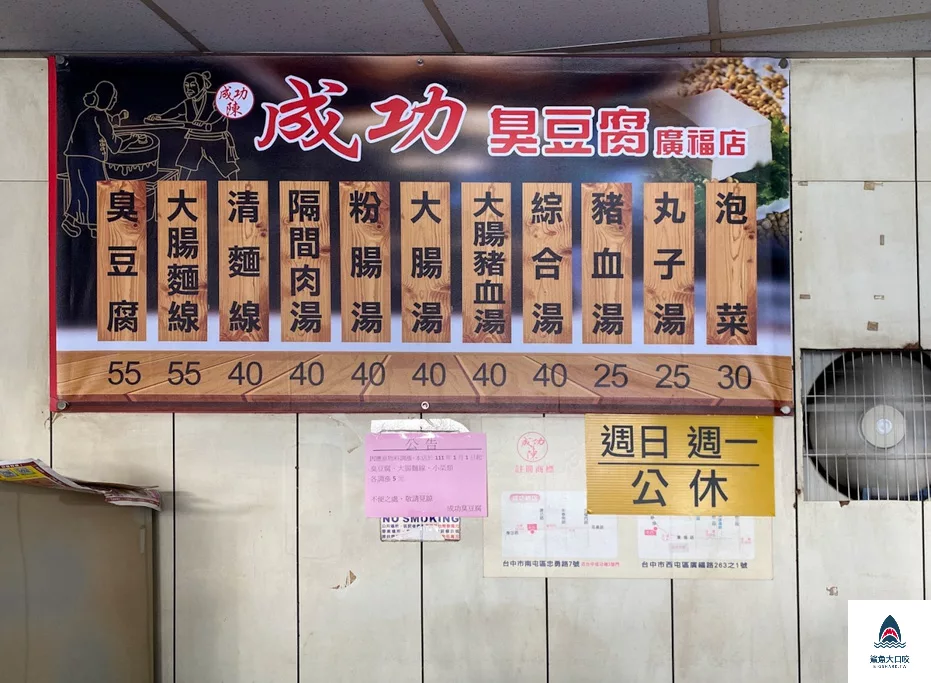 成功
陳
成功 臭豆腐 廣福店
臭豆腐
大腸麵線
清麵線
隔間肉湯
粉腸湯
大腸湯
大腸豬血湯
綜合湯
豬血湯
丸子湯
泡菜
55 55 40 40 40 40 40 40 25 25 30
公告
臭豆腐、大腸麵線、小菜類
各調漲5元
不便之處,敬請見諒
成功臭豆腐
NO SMOKING
成功
陳
註冊商標
週日 週一
公休
台中市南屯區忠勇路7號
台中市西屯區廣福路263之1號
鯊魚大口咬